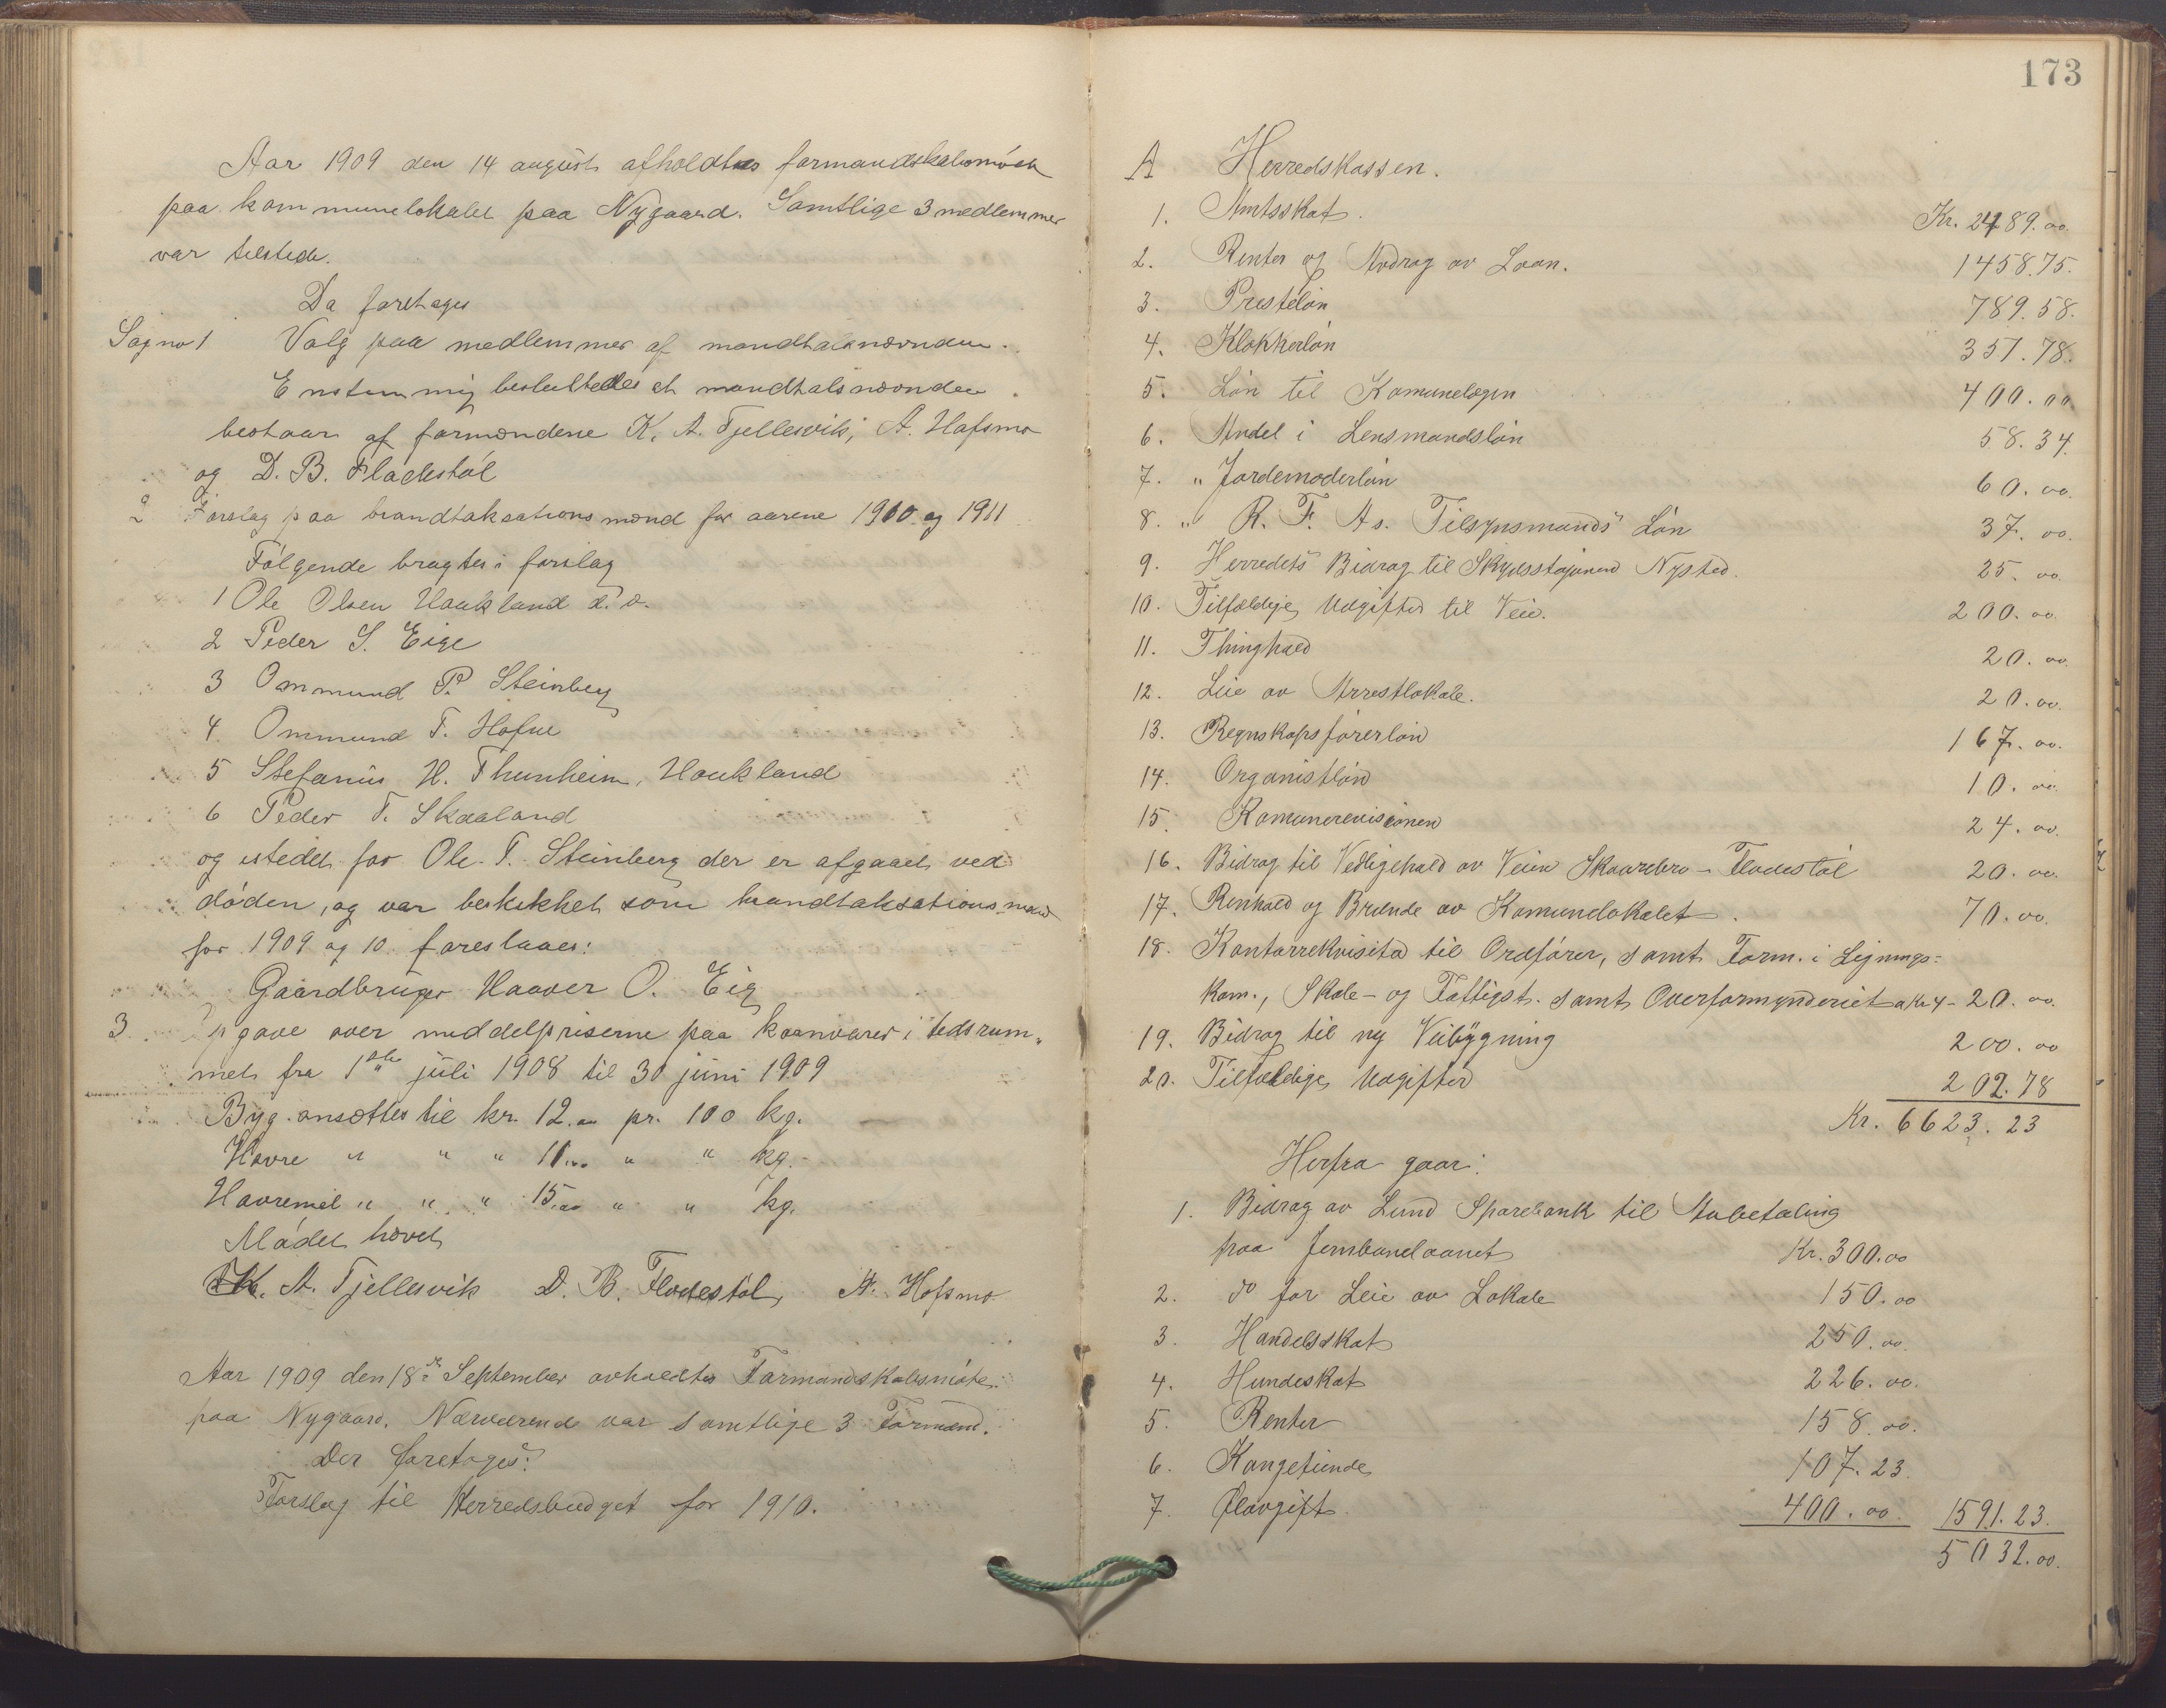 Aar 1909 den 14 august afholdtes formandskabsmöde
paa kommunelokalet paa Nygaard. Samtlige 3 medlemmer
var tilstede.
Da foretages
Sag no 1 Valg paa medlemmer af mandtalsnævnden.
Enstemmig besluttedes at mandtalsnævnden
bestaar af formændene K. A. Tjellesvik, A. Hafsmo
og D. B. Fladestöl
2 Forslag paa brandtaksations mænd for aarene 1910 og 1911
Fölgende bragtes i forslag
1 Ole Olsen Haukland d. o.
2 Peder S. Eige
3 Ommund P. Steinberg
4 Ommund T. Hofne
5 Stefanus H. Thunheim, Haukland
6 Peder T. Skaaland
og istedet for Ole T. Steinberg der er afgaaet ved
döden, og var beskikket som brandtaksationsmand
for 1909 og 10. foreslaaes:
Gaardbruger Haaver O. Eig
3 Opgave over middelpriserne paa kornvarer i tidsrum-
met fra 1ste juli 1908 til 30 juni 1909
Byg ansættes til kr. 12.oo pr. 100 kg.
Havre " " " 11.oo " " kg.
Havremel " " " 15.oo " " kg.
Mödet hævet
K. A. Tjellesvik D. B. Flodestöl, A. Hofsmo
Aar 1909 den 18de September avholdtes Formandskabsmöte
paa Nygaard. Nærværende var samtlige 3 Formænd.
Der foretoges:
Forslag til Herredsbudget for 1910.
173
A Herredskassen.
1. Amtsskat. Kr. 2489.oo
2. Renter og Avdrag av Laan. 1458.75.
3. Presteløn 789.58.
4. Klokkerløn 351.78.
5. Løn til Komunelægen 400.oo
6. Andel i Lensmandsløn 58.34.
7. " Jordemoderløn 60.oo.
8. " R. F. As. Tilsynsmands Løn 37.oo.
9. Herredets Bidrag til Skydsstasjonen Nysted. 25.oo
10. Tilfældige Udgifter til Veie. 200.oo
11. Thinghold 20.oo.
12. Leie av Arrestlokale. 20.oo.
13. Regnskapsførerløn 167.oo.
14. Organistløn 10.oo.
15. Komunerevisionen 24.oo.
16. Bidrag til Vedligehold av Veien Skaarebro - Flodestøl 20.oo.
17. Renhold og Brænde av Komunelokalet. 70.oo.
18. Kontorrekvisita til Ordfører, samt Form. i Lignings-
kom., Skole- og Fattigst. samt Overformynderiet a kr 4 - 20.oo.
19. Bidrag til ny Veibygning 200.oo
20. Tilfældige Udgifter 202.78
Kr. 6623.23
Herfra gaar:
1. Bidrag av Lund Sparebank til Avbetaling
paa Jernbanelaanet Kr. 300.oo
2. do for Leie av Lokale 150.oo
3. Handelsskat 250.oo.
4. Hundeskat 226.oo.
5. Renter 158.oo.
6. Kongetiende 107.23.
7. Ølavgift 400.oo. 1591.23.
5032.oo.